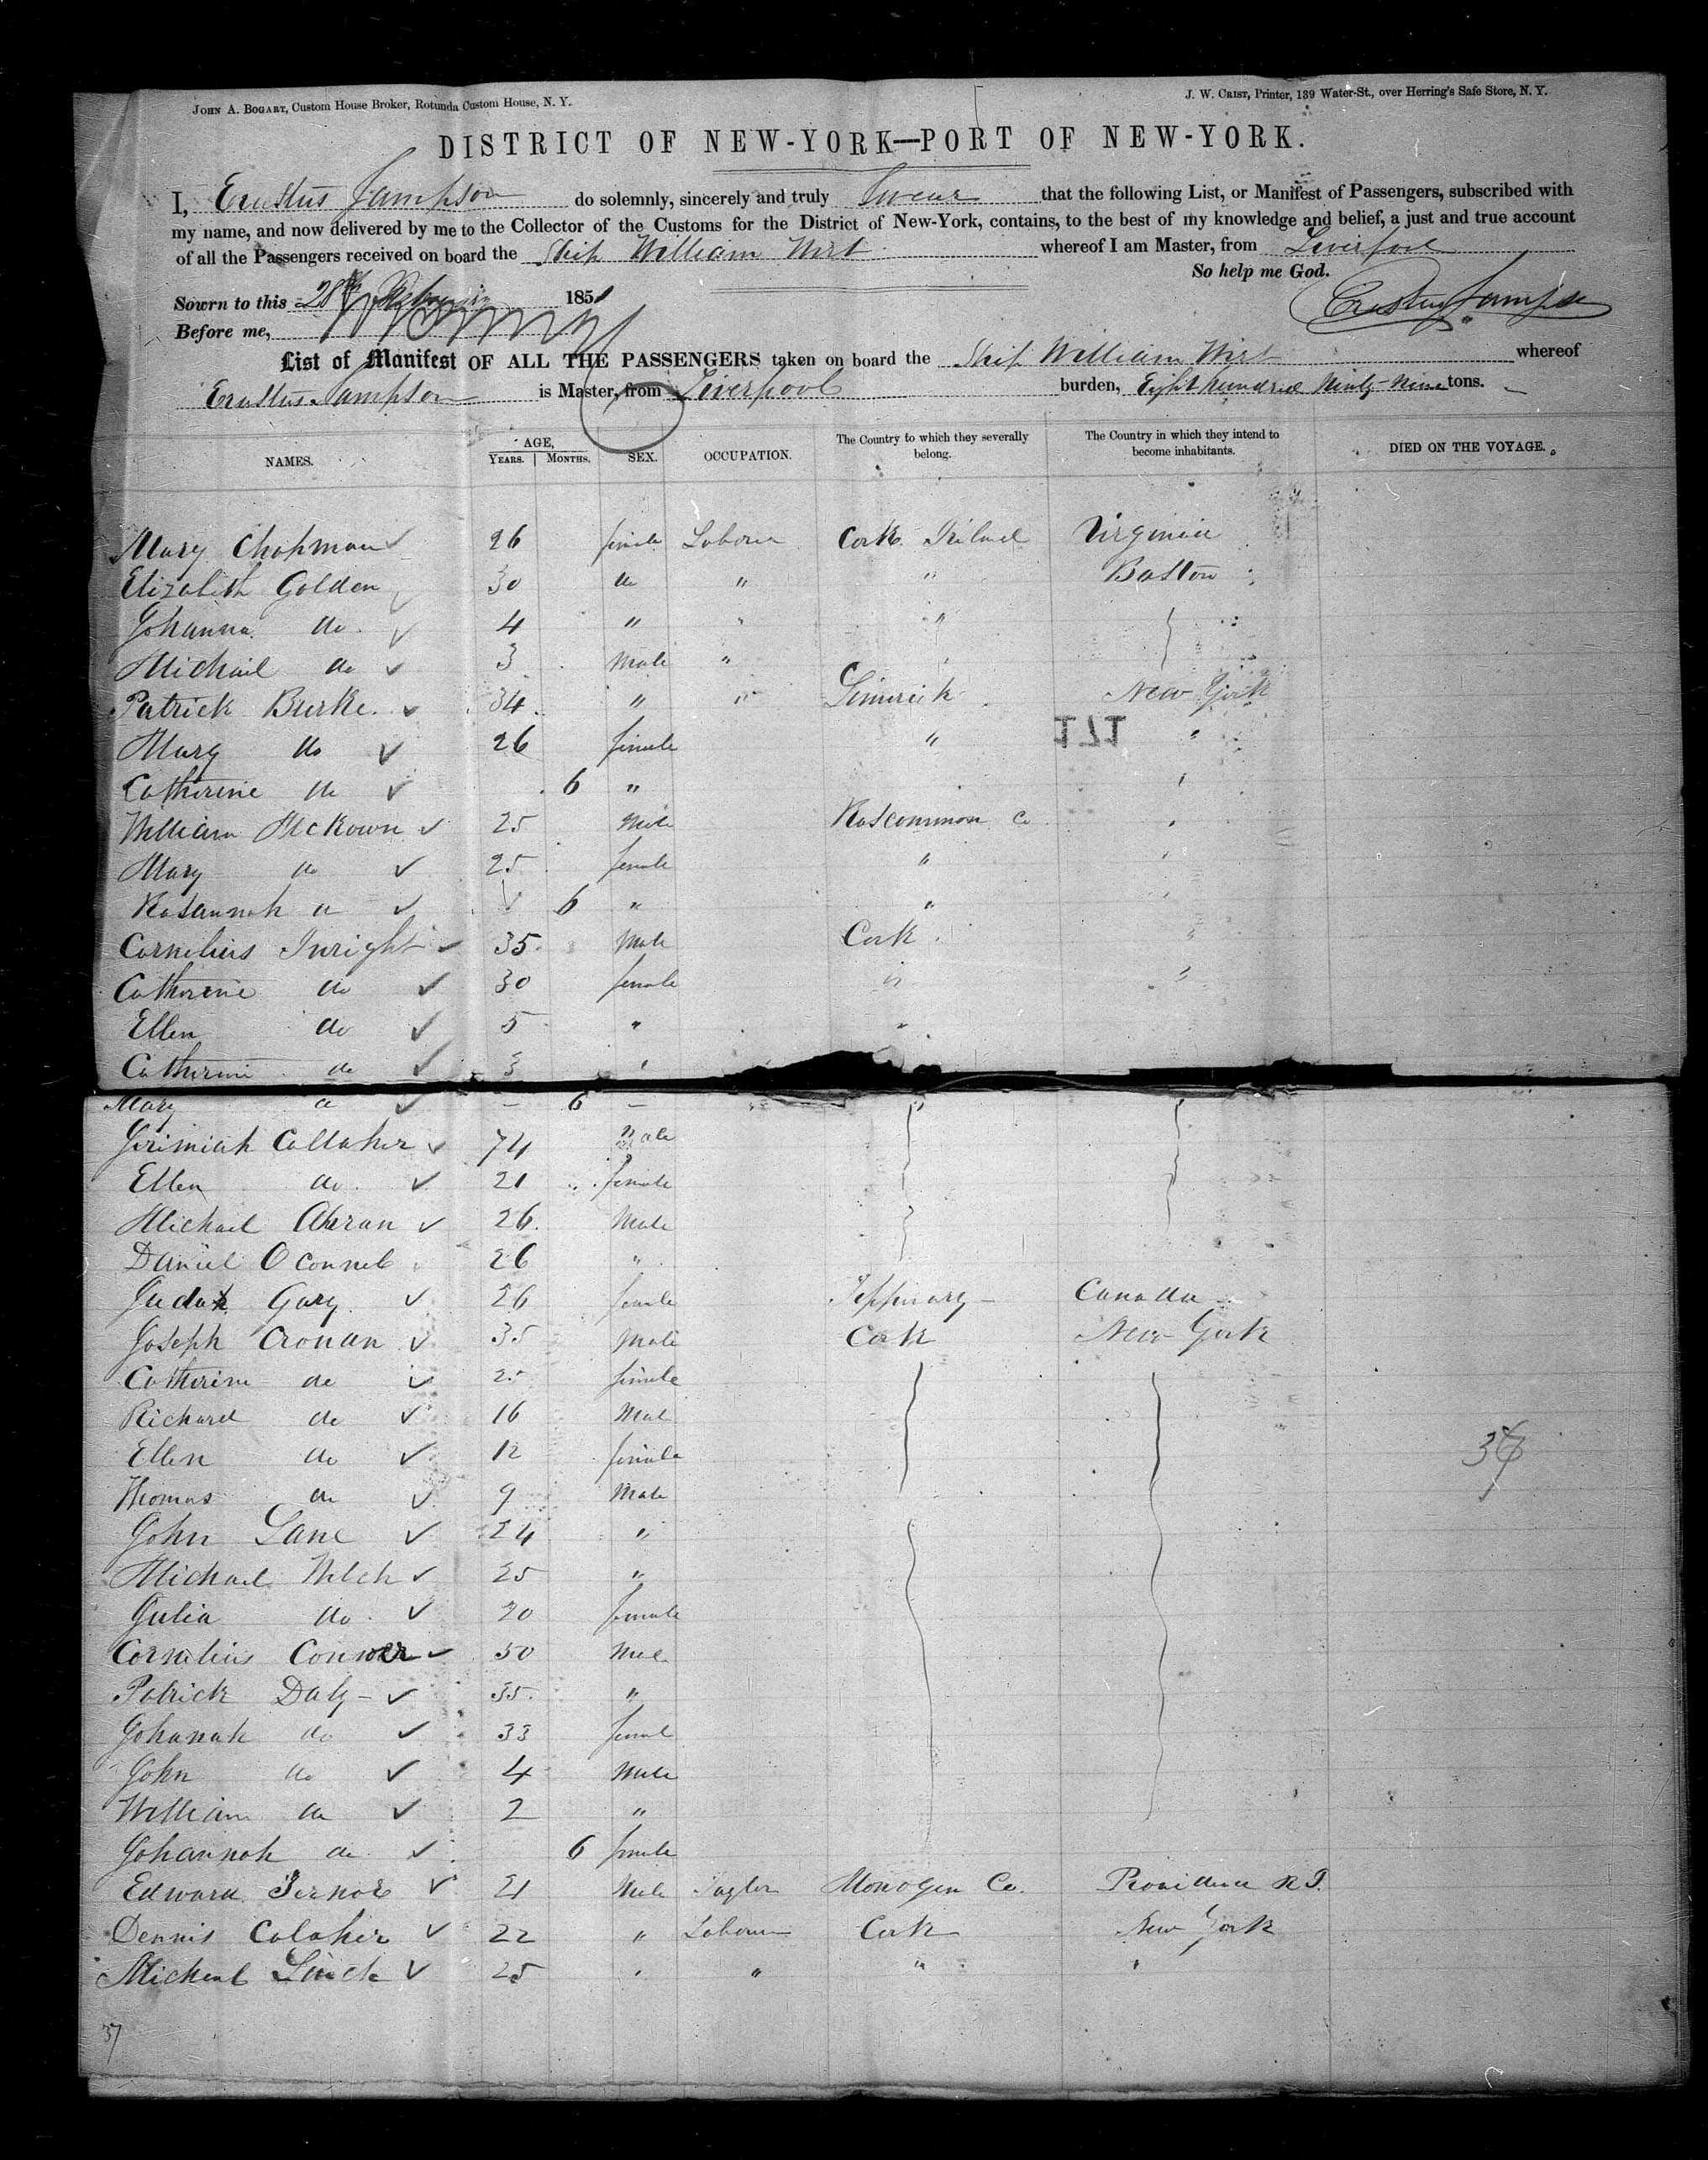 JOHN A. BOGART, Custom House Broker, Rotunda Custom House, N. Y.
J. W. CRIST, Printer, 139 Water-St., over Herring's Safe Store, N. Y.
DISTRICT OF NEW-YORK—PORT OF NEW-YORK.
I, Erastus Sampson do solemnly, sincerely and truly Swear that the following List, or Manifest of Passengers, subscribed with
my name, and now delivered by me to the Collector of the Customs for the District of New-York, contains, to the best of my knowledge and belief, a just and true account
of all the Passengers received on board the Ship William Wirt whereof I am Master, from Liverpool
So help me God.
Sowrn to this 28th 1851
Erastus Sampson
Before me,
List of Manifest OF ALL THE PASSENGERS taken on board the Ship William Wirt whereof
Erastus Sampson is Master, from Liverpool burden, Eight hundred Ninty-Nine tons.
NAMES. AGE, YEARS. MONTHS. SEX. OCCUPATION. The Country to which they severally belong. The Country in which they intend to become inhabitants. DIED ON THE VOYAGE.
Mary Chapman 26 female Labourer Cork Ireland Virginia
Elizabeth Golden 30 do " " Boston
Johanna do 4 " " "
Michail do 3 Male "
Patrick Burke 34 " " Limrick New York
Mary do 26 female " "
171
Catherine do 6 " "
William McKown 25 Male Roscommon Co "
Mary do 25 female " "
Rosannah do 6 " " "
Cornelius Inright 35 Male Cork "
Catherine do 30 female " "
Ellen do 5 " "
Catherine do 3 "
Mary do - 6 - "
Jerimiah Callaher 74 Male
Ellen do 21 female
Michail Aheran 26 Male
Daniel O Connel 26 "
Judah Gary 26 female Tippirary Canada
Joseph Cronan 35 Male Cork New York
Catherine do 25 female
Richard do 16 Male
Ellen do 12 female
Thomas do 9 Male
John Lane 24 "
Michael Welch 25 "
Julia do 20 female
Cornelius Conner 50 Male
Patrick Daly 35 "
Johanah do 33 female
John do 4 Male
William do 2 "
Johannah do 6 female
Edward 21 Male Taylor Monogen Co. Providence R I.
Dennis Calaher 22 " Labourer Cork New York
Micheal Linch 25 " " " "
37